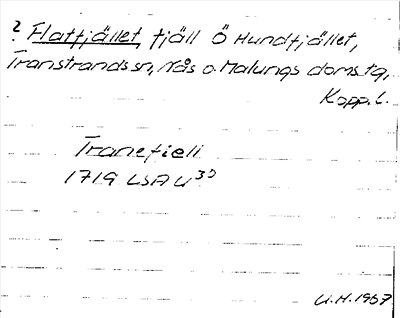 ? Flatfjället, fjäll Ö Hundfjället,
Transtrands sn, Nås o. Malungs doms.tg,
Kopp. l.
Tranefiell
1719 LSA U 30
U.H. 1957